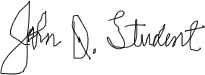 John Q. Student